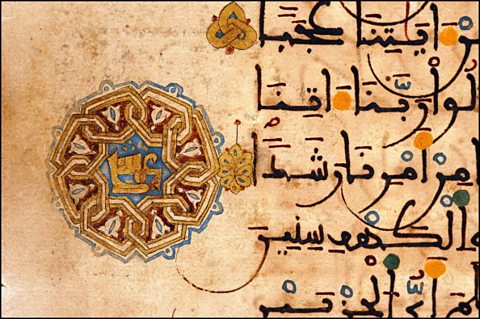 من ايتنا عجبا
لوا ربنا اتنا
من امرنا رشدا
في الكهف سنين
لم اي الحزبين